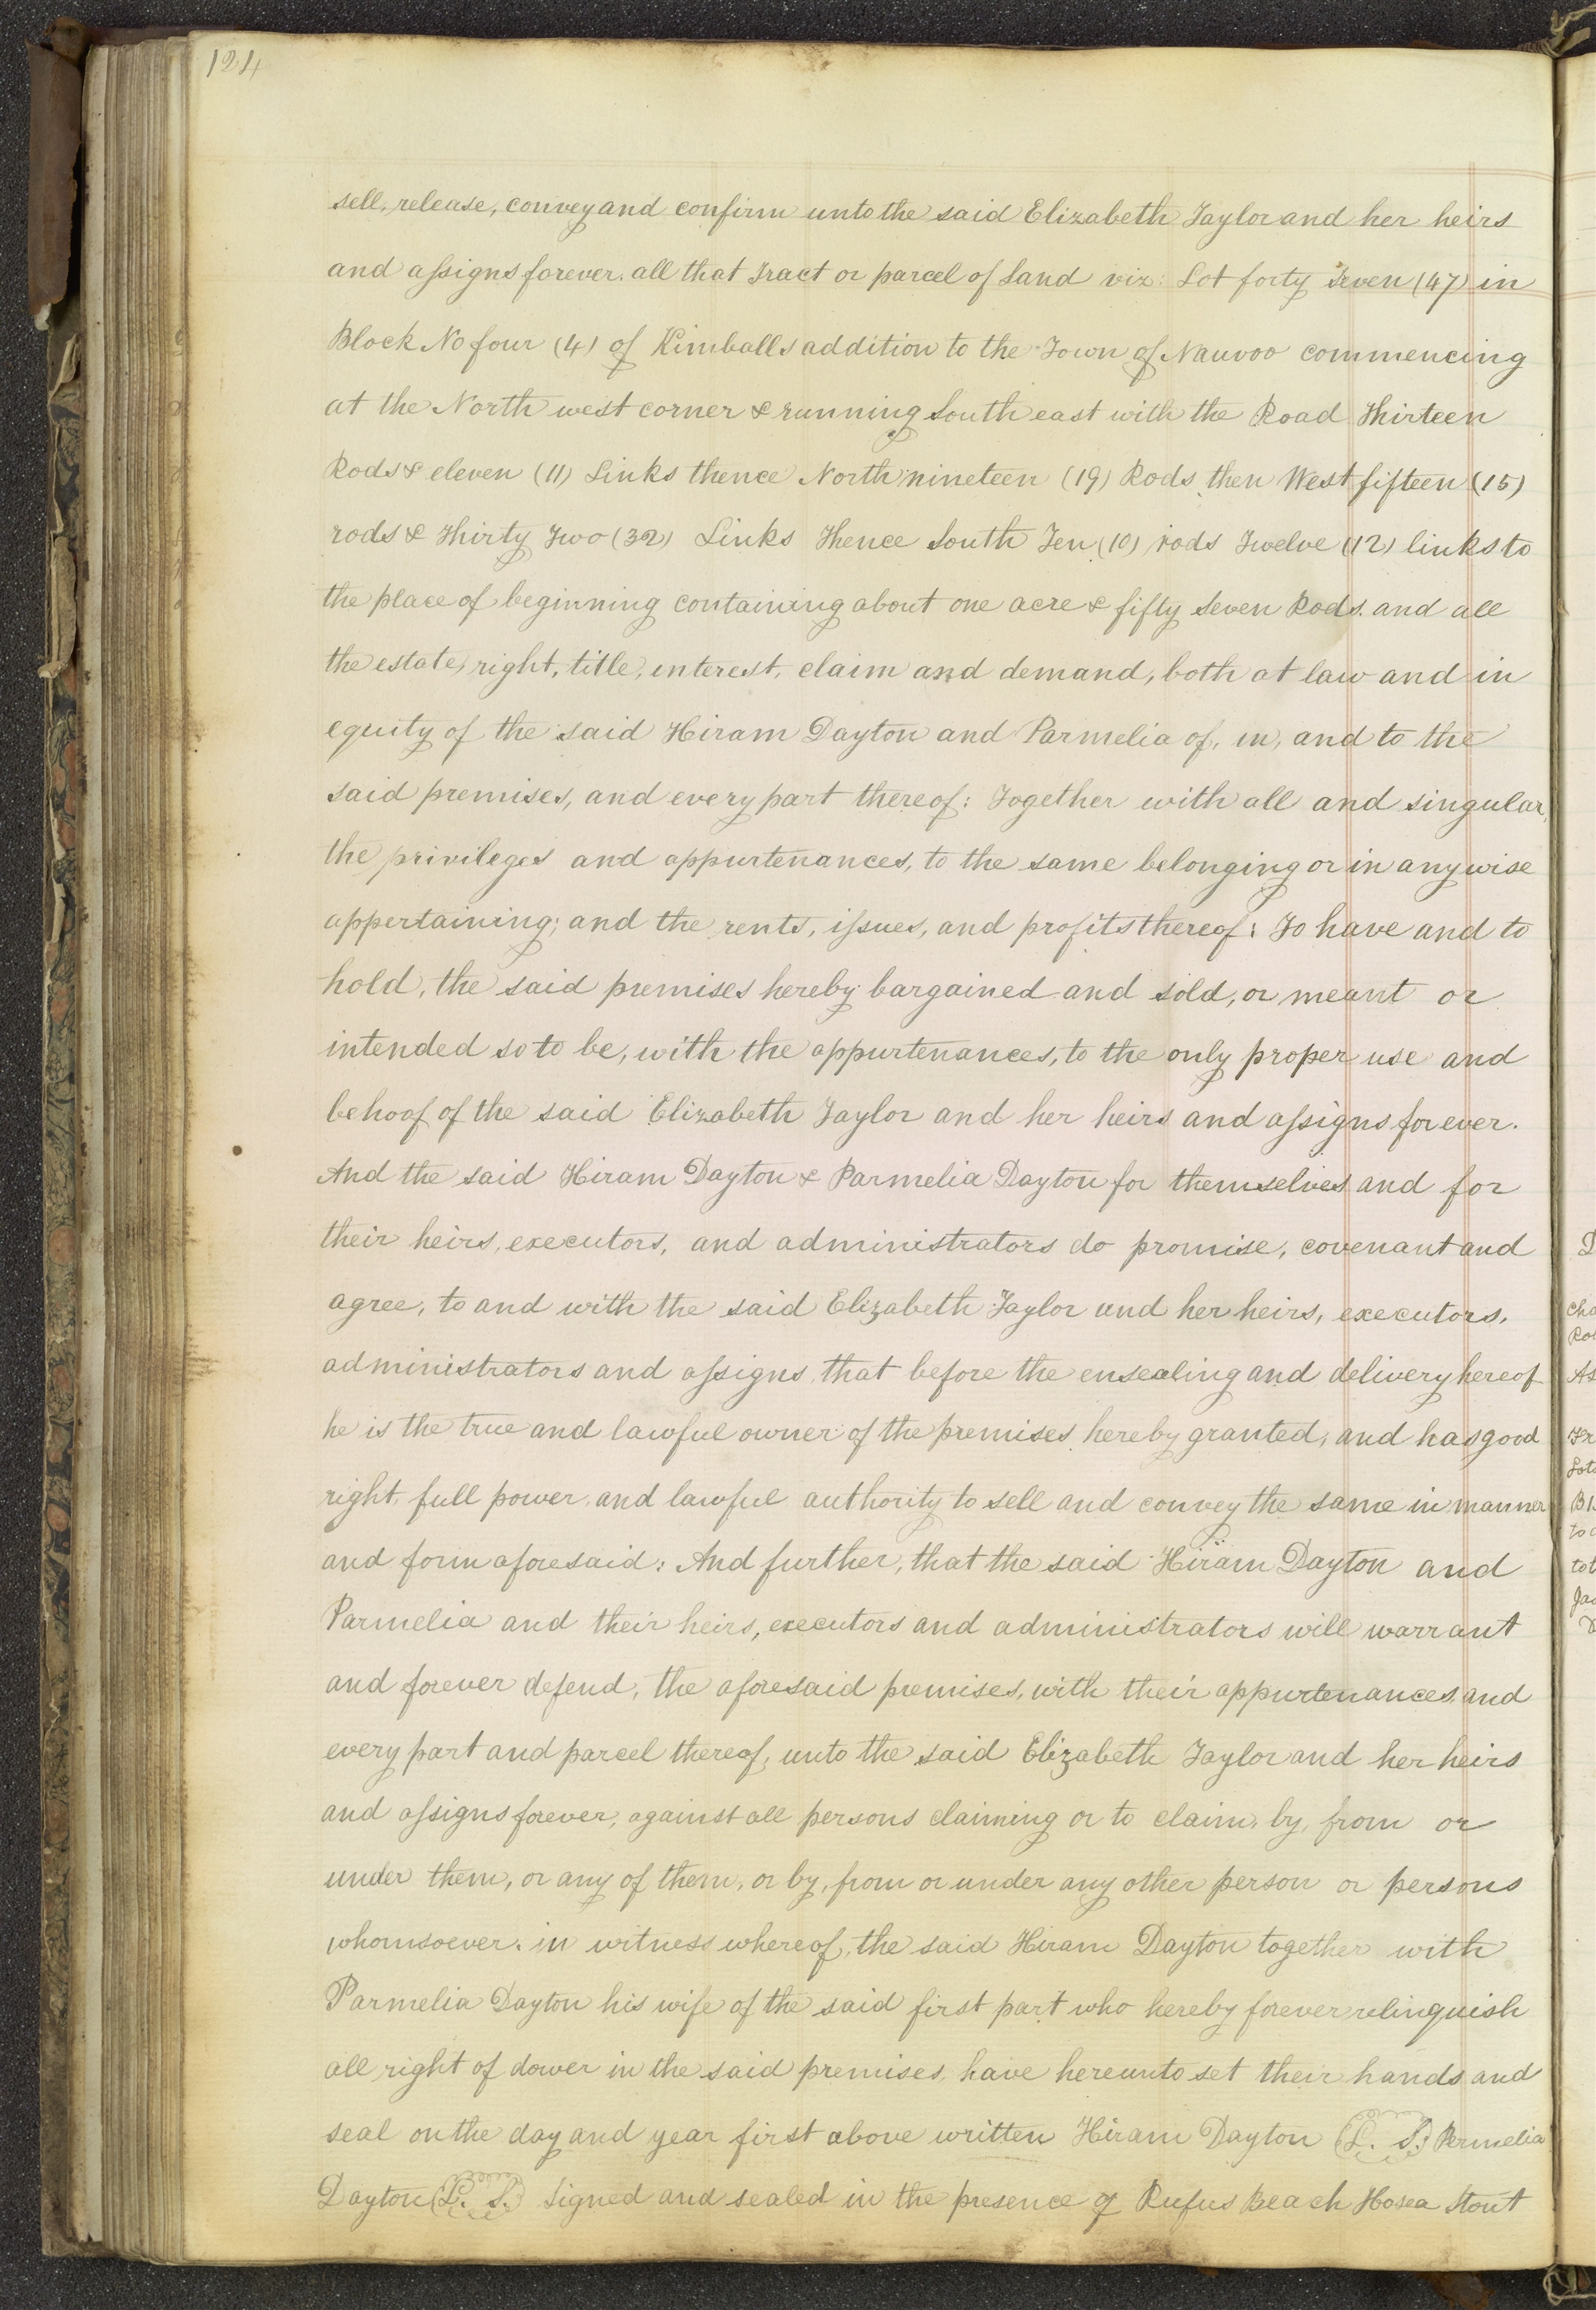 124
sell, release, convey and confirm unto the said Elizabeth Taylor and her heirs
and assigns forever. all that Tract or parcel of Land viz: Lot forty Seven (47) in
Block No four (4) of Kimballs addition to the Town of Nauvoo commencing
at the North west corner & running South east with the Road Thirteen
Rods & eleven (11) Links thence North nineteen (19) Rods then West fifteen (15)
rods & Thirty Two (32) Links Thence South Ten (10) rods Twelve (12) links to
the place of beginning containing about one acre & fifty Seven Rods. and all
the estate, right, title, interest, claim and demand, both at law and in
equity of the said Hiram Dayton and Parmelia of, in, and to the
said premises, and every part thereof: Together with all and singular,
the privileges and appurtenances, to the same belonging or in anywise
appertaining; and the rents, issues, and profits thereof: To have and to
hold, the said premises hereby bargained and sold, or meant or
intended so to be, with the appurtenances, to the only proper use and
behoof of the said Elizabeth Taylor and her heirs and assigns forever.
And the said Hiram Dayton & Parmelia Dayton for themselves and for
their heirs, executors, and administrators do promise, covenant and
agree, to and with the said Elizabeth Taylor and her heirs, executors,
administrators and assigns, that before the ensealing and delivery hereof
he is the true and lawful owner of the premises hereby granted, and has good
right, full power, and lawful authority to sell and convey the same in manner
and form aforesaid: And further, that the said Hiram Dayton and
Parmelia and their heirs, executors and administrators will warrant
and forever defend, the aforesaid premises, with their appurtenances, and
every part and parcel thereof, unto the said Elizabeth Taylor and her heirs
and assigns forever, against all persons claiming or to claim, by, from or
under them, or any of them, or by, from or under any other person or persons
whomsoever. in witness whereof, the said Hiram Dayton together with
Parmelia Dayton his wife of the said first part who hereby forever relinquish
all right of dower in the said premises, have hereunto set their hands and
seal on the day and year first above written Hiram Dayton (L. S.) Permelia
Dayton (L. S.) Signed and sealed in the presence of Rufus Beach Hosea Stout